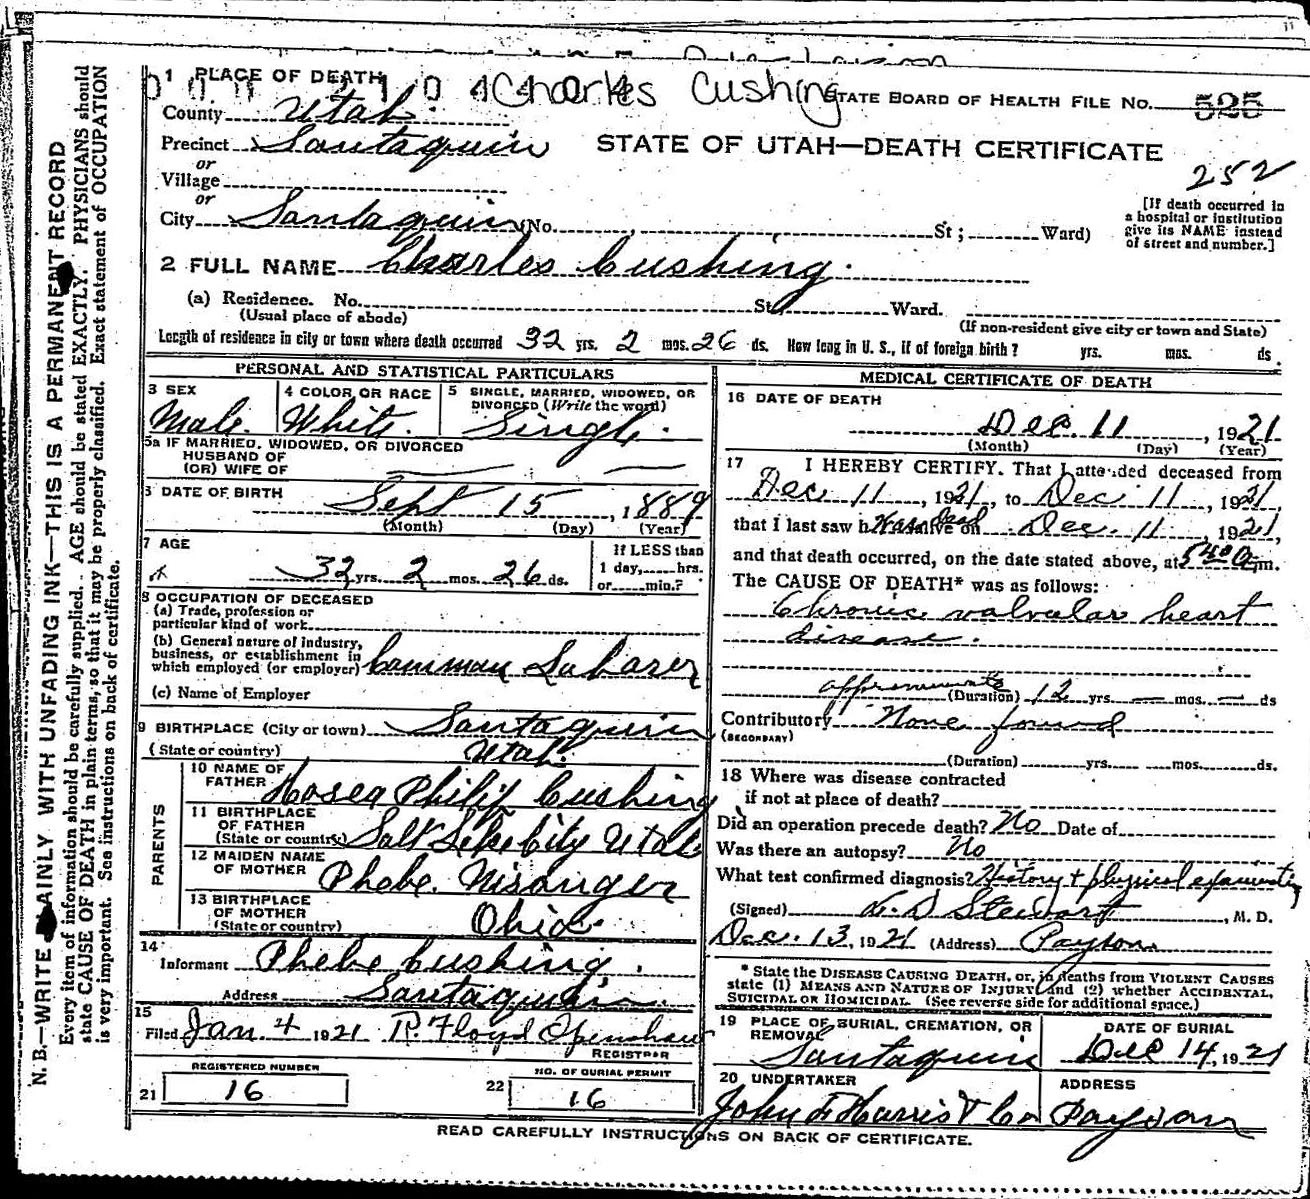 1 PLACE OF DEATH
Charles Cushing
STATE BOARD OF HEALTH FILE No. 525
County Utah.
Precinct Santaquin
STATE OF UTAH—DEATH CERTIFICATE
or
Village
252
or
City Santaquin (No. , St ; Ward)
[If death occurred in
a hospital or institution
give its NAME instead
of street and number.]
2 FULL NAME Charles Cushing.
(a) Residence. No. St. Ward.
(Usual place of abode)
(If non-resident give city or town and State)
Length of residence in city or town where death occurred 32 yrs. 2 mos. 26 ds. How long in U. S., if of foreign birth? yrs. mos. ds.
PERSONAL AND STATISTICAL PARTICULARS
3 SEX
Male.
4 COLOR OR RACE
White.
5 SINGLE, MARRIED, WIDOWED, OR
DIVORCED (Write the word)
Single.
5a IF MARRIED, WIDOWED, OR DIVORCED
HUSBAND OF
(OR) WIFE OF
DATE OF BIRTH
Sept 15, 1889
(Month) (Day) (Year)
7 AGE
32 yrs. 2 mos. 26 ds.
If LESS than
1 day, hrs.
or min.?
8 OCCUPATION OF DECEASED
(a) Trade, profession or
particular kind of work
(b) General nature of industry,
business, or establishment in
which employed (or employer) Common Laborer
(c) Name of Employer
9 BIRTHPLACE (City or town) Santaquin
(State or country) Utah.
PARENTS
10 NAME OF
FATHER Hosea Philip Cushing
11 BIRTHPLACE
OF FATHER
(State or country) Salt Lake City Utah
12 MAIDEN NAME
OF MOTHER Phebe. Nisonger
13 BIRTHPLACE
OF MOTHER
(State or country) Ohio.
14
Informant Phebe Cushing.
Address Santaquin.
15
Filed Jan. 4 1921 R. Floyd Openshaw
REGISTRAR
REGISTERED NUMBER
21 16
NO. OF BURIAL PERMIT
22 16
MEDICAL CERTIFICATE OF DEATH
16 DATE OF DEATH
Dec. 11, 1921
(Month) (Day) (Year)
17 I HEREBY CERTIFY. That I attended deceased from
Dec 11, 1921, to Dec. 11, 1921,
that I last saw h was dead alive on Dec. 11 1921,
and that death occurred, on the date stated above, at 5 40 a.m.
The CAUSE OF DEATH* was as follows:
Chronic valvular heart
disease.
approximate (Duration) 12 yrs. — mos. — ds
Contributory None found
(SECONDARY)
(Duration) yrs. mos. ds.
18 Where was disease contracted
if not at place of death?
Did an operation precede death? No Date of
Was there an autopsy? No
What test confirmed diagnosis? History + physical examination
(Signed) L. D Stewart, M. D.
Dec. 13, 1921 (Address) Payson.
* State the DISEASE CAUSING DEATH, or, in deaths from VIOLENT CAUSES
state (1) MEANS AND NATURE OF INJURY, and (2) whether ACCIDENTAL,
SUICIDAL OR HOMICIDAL. (See reverse side for additional space.)
19 PLACE OF BURIAL, CREMATION, OR
REMOVAL
Santaquin
DATE OF BURIAL
Dec 14, 1921
20 UNDERTAKER
John F Harris & Co
ADDRESS
Payson
READ CAREFULLY INSTRUCTIONS ON BACK OF CERTIFICATE.
N. B.—WRITE PLAINLY WITH UNFADING INK—THIS IS A PERMANENT RECORD
Every item of information should be carefully supplied. AGE should be stated EXACTLY. PHYSICIANS should
state CAUSE OF DEATH in plain terms, so that it may be properly classified. Exact statement of OCCUPATION
is very important. See instructions on back of certificate.